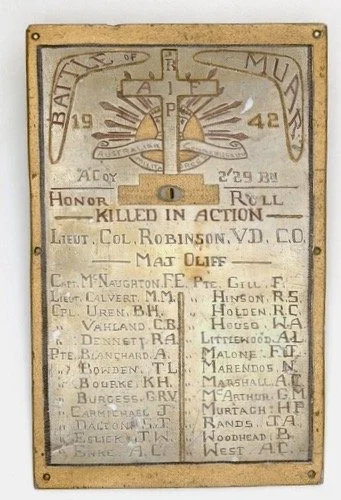 BATTLE OF MUAR
R
A I F
P
1942
AUSTRALIAN COMMONWEALTH
MILITARY FORCES
A COY 2/29 BN
HONOR ROLL
KILLED IN ACTION
LIEUT. COL. ROBINSON, V.D. C.O.
MAJ OLIFF
CAPT. McNAUGHTON, F.E.
LIEUT. CALVERT, M.M.
CPL. UREN, B.H.
" VAHLAND, C.B.
" DENNETT, R.A.
PTE. BLANCHARD, A.
" BOWDEN, T.L.
" BOURKE, K.H.
" BURGESS, G.R.V.
" CARMICHAEL, J.
" DALTON, G.F.
" ESLICK, T.W.
A.C.
PTE. GILL, F.
" HINSON, R.S.
" HOLDEN, R.C.
" HOUSO, W.A.
" LITTLEWOOD, A.L.
" MALONE, F.J.
" MARENDOS, N.
" MARSHALL, A.T.
" McARTHUR, G.M.
" MURTAGH, H.F.
" RANDS, J.A.
" WOODHEAD, B.
" WEST, A.C.